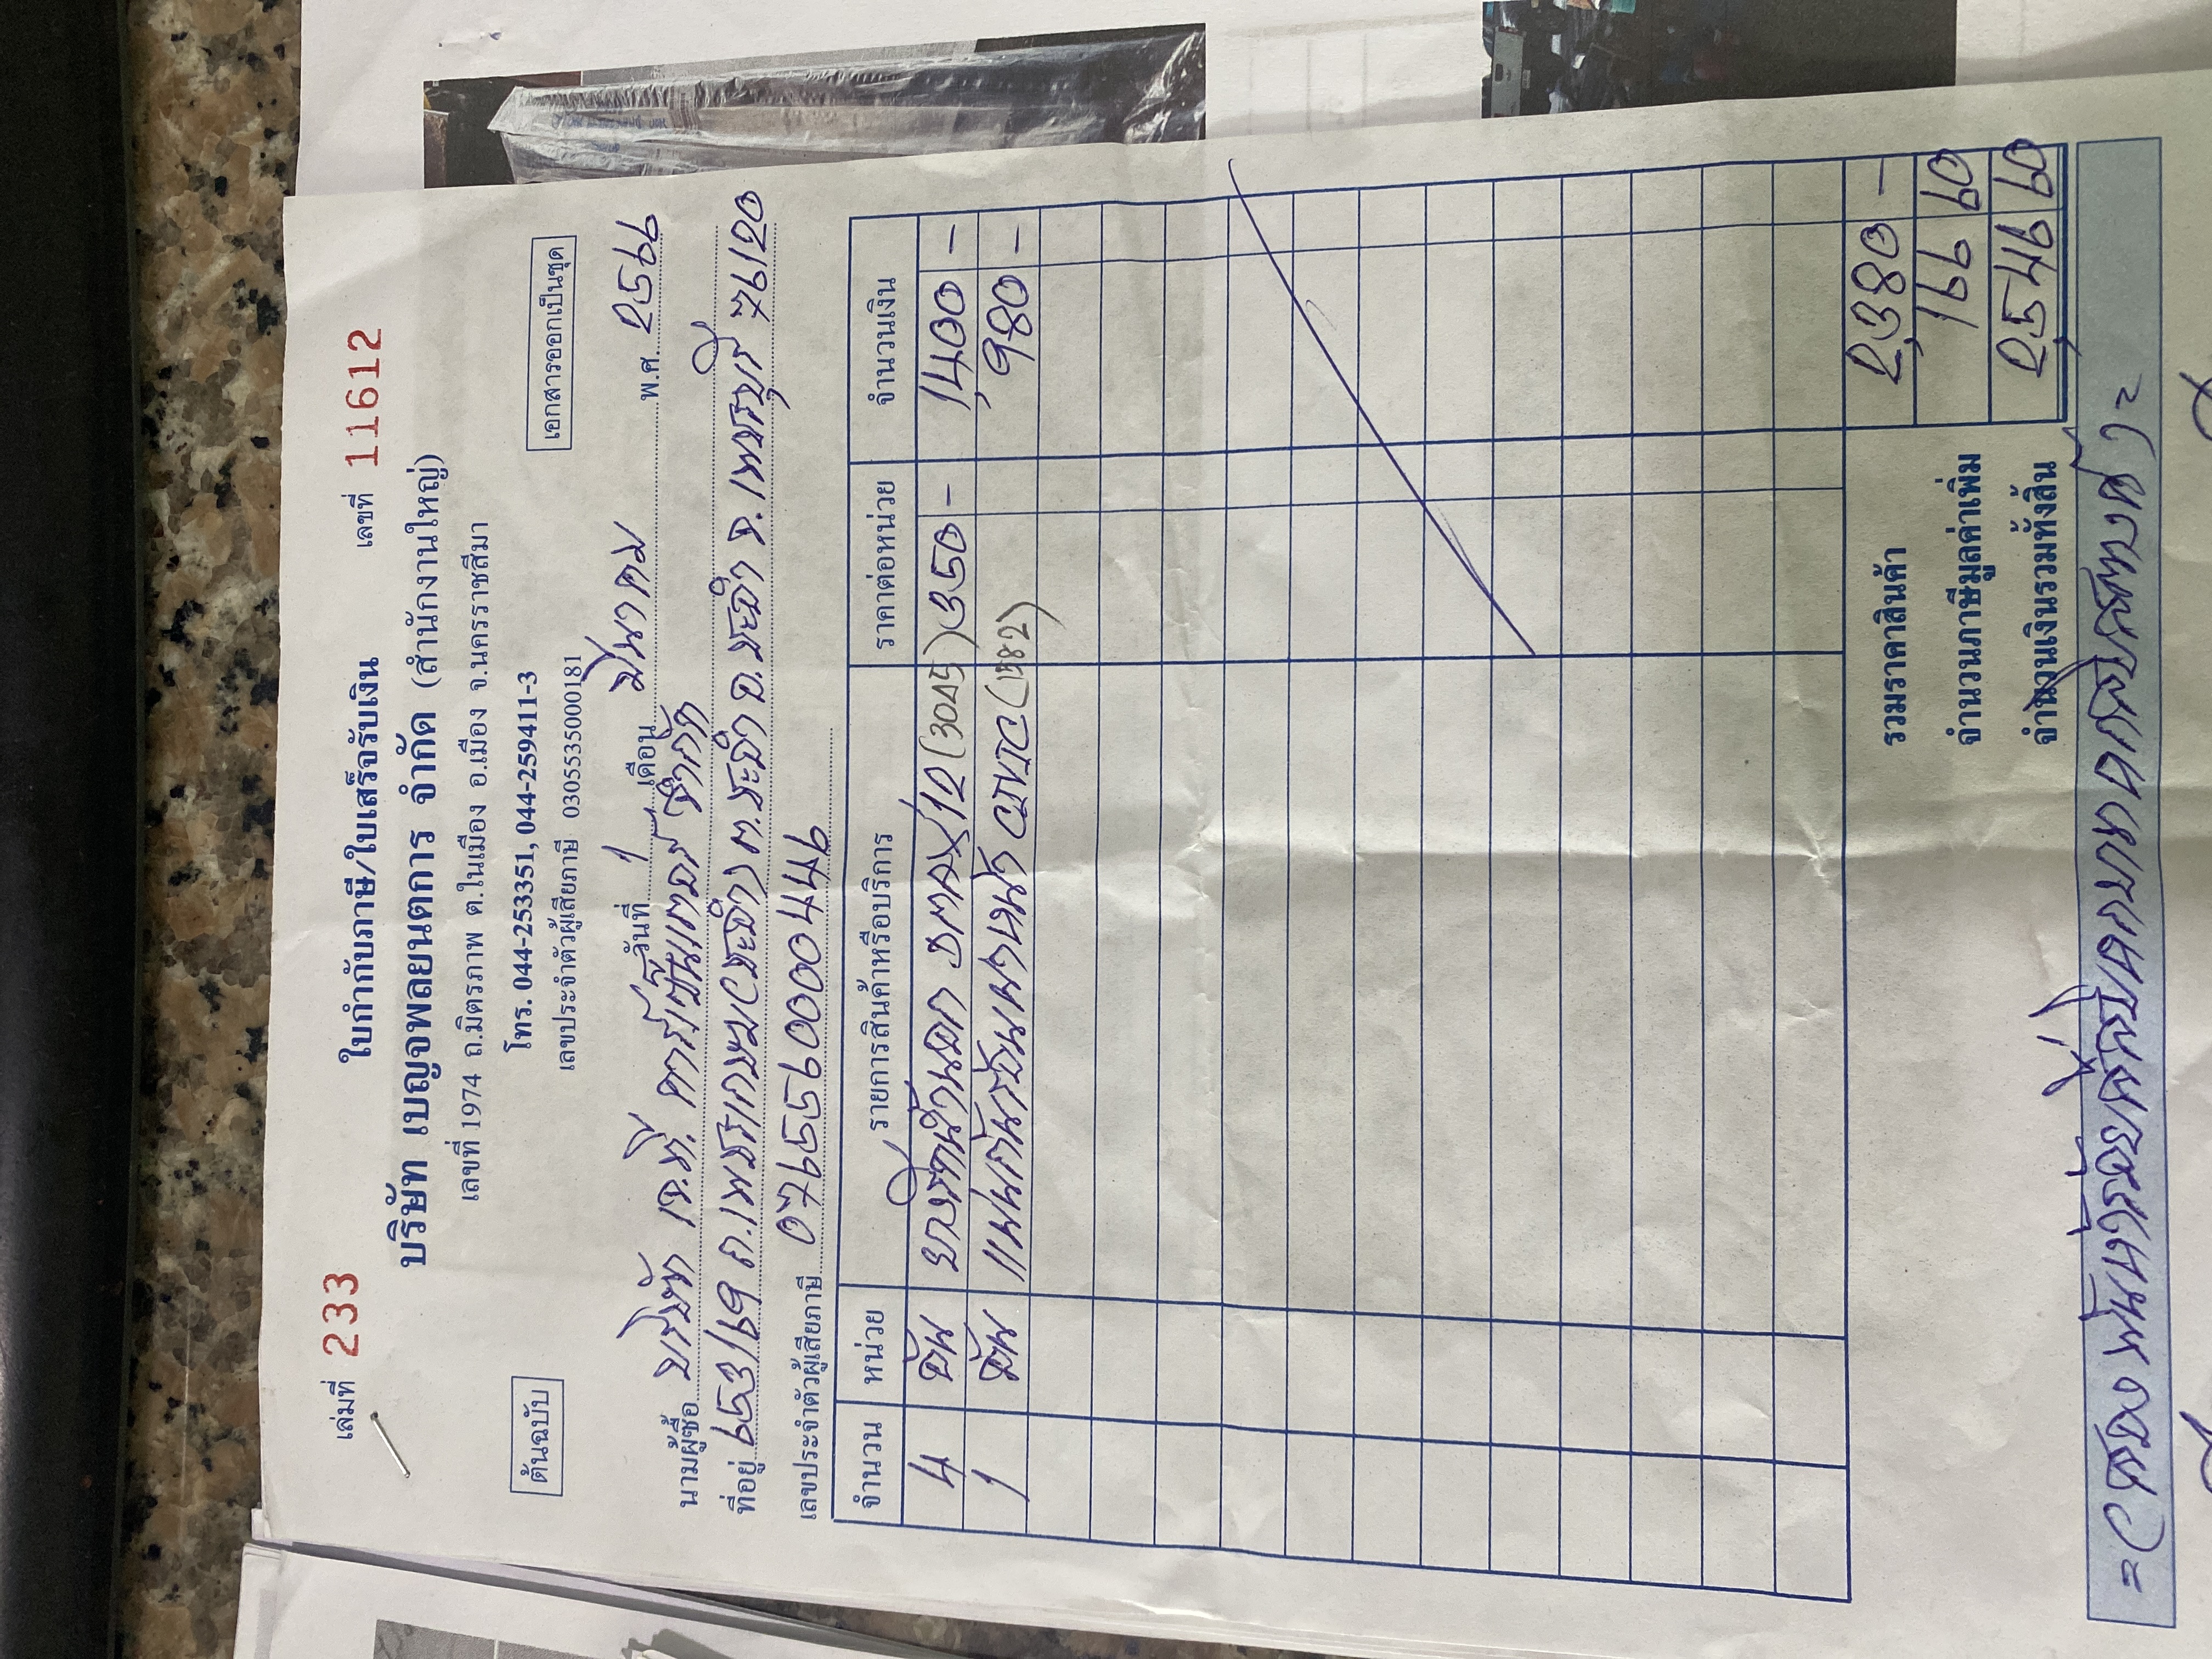 เล่มที่ 233 ใบกำกับภาษี/ใบเสร็จรับเงิน เลขที่ 11612
บริษัท เบญจพลยนตการ จำกัด (สำนักงานใหญ่)
เลขที่ 1974 ถ.มิตรภาพ ต.ในเมือง อ.เมือง จ.นครราชสีมา
โทร. 044-253351, 044-259411-3
ต้นฉบับ เลขประจำตัวผู้เสียภาษี 0305535000181 เอกสารออกเป็นชุด
วันที่ 1 เดือน มีนาคม พ.ศ. 2566
นามผู้ซื้อ บริษัท เจ.ที. คาร์เซ็นเตอร์ จำกัด
ที่อยู่ 653/16 ถ.เพชรเกษม ต.ชะอำ อ.ชะอำ จ.เพชรบุรี 76120
เลขประจำตัวผู้เสียภาษี 0765560000944
จำนวน หน่วย รายการสินค้าหรือบริการ ราคาต่อหน่วย จำนวนเงิน
4 อัน ยางรีดน้ำนอก DMAX/12 (3045) 350 - 1,400 -
1 อัน แผ่นกันชนหน้า CIVIC (1582) 980 -
รวมราคาสินค้า 2,380 -
จำนวนภาษีมูลค่าเพิ่ม 166 60
จำนวนเงินรวมทั้งสิ้น 2,546 60
=(สองพันห้าร้อยสี่สิบหกบาทหกสิบสตางค์)=